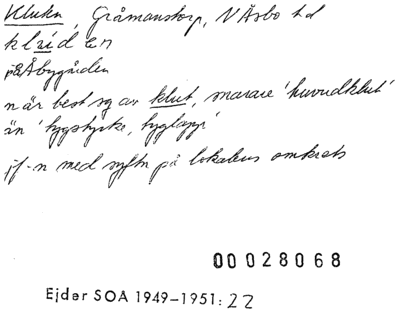 Kluten, Gråmanstorp, N Åsbo hd
klúden
på Åbygården
n är best sg av klut, snarare 'huvudklut'
än 'tygstycke, tyglapp'
jf-n med syftn på lokalens omkrets
00028068
Ejder SOA 1949-1951:22